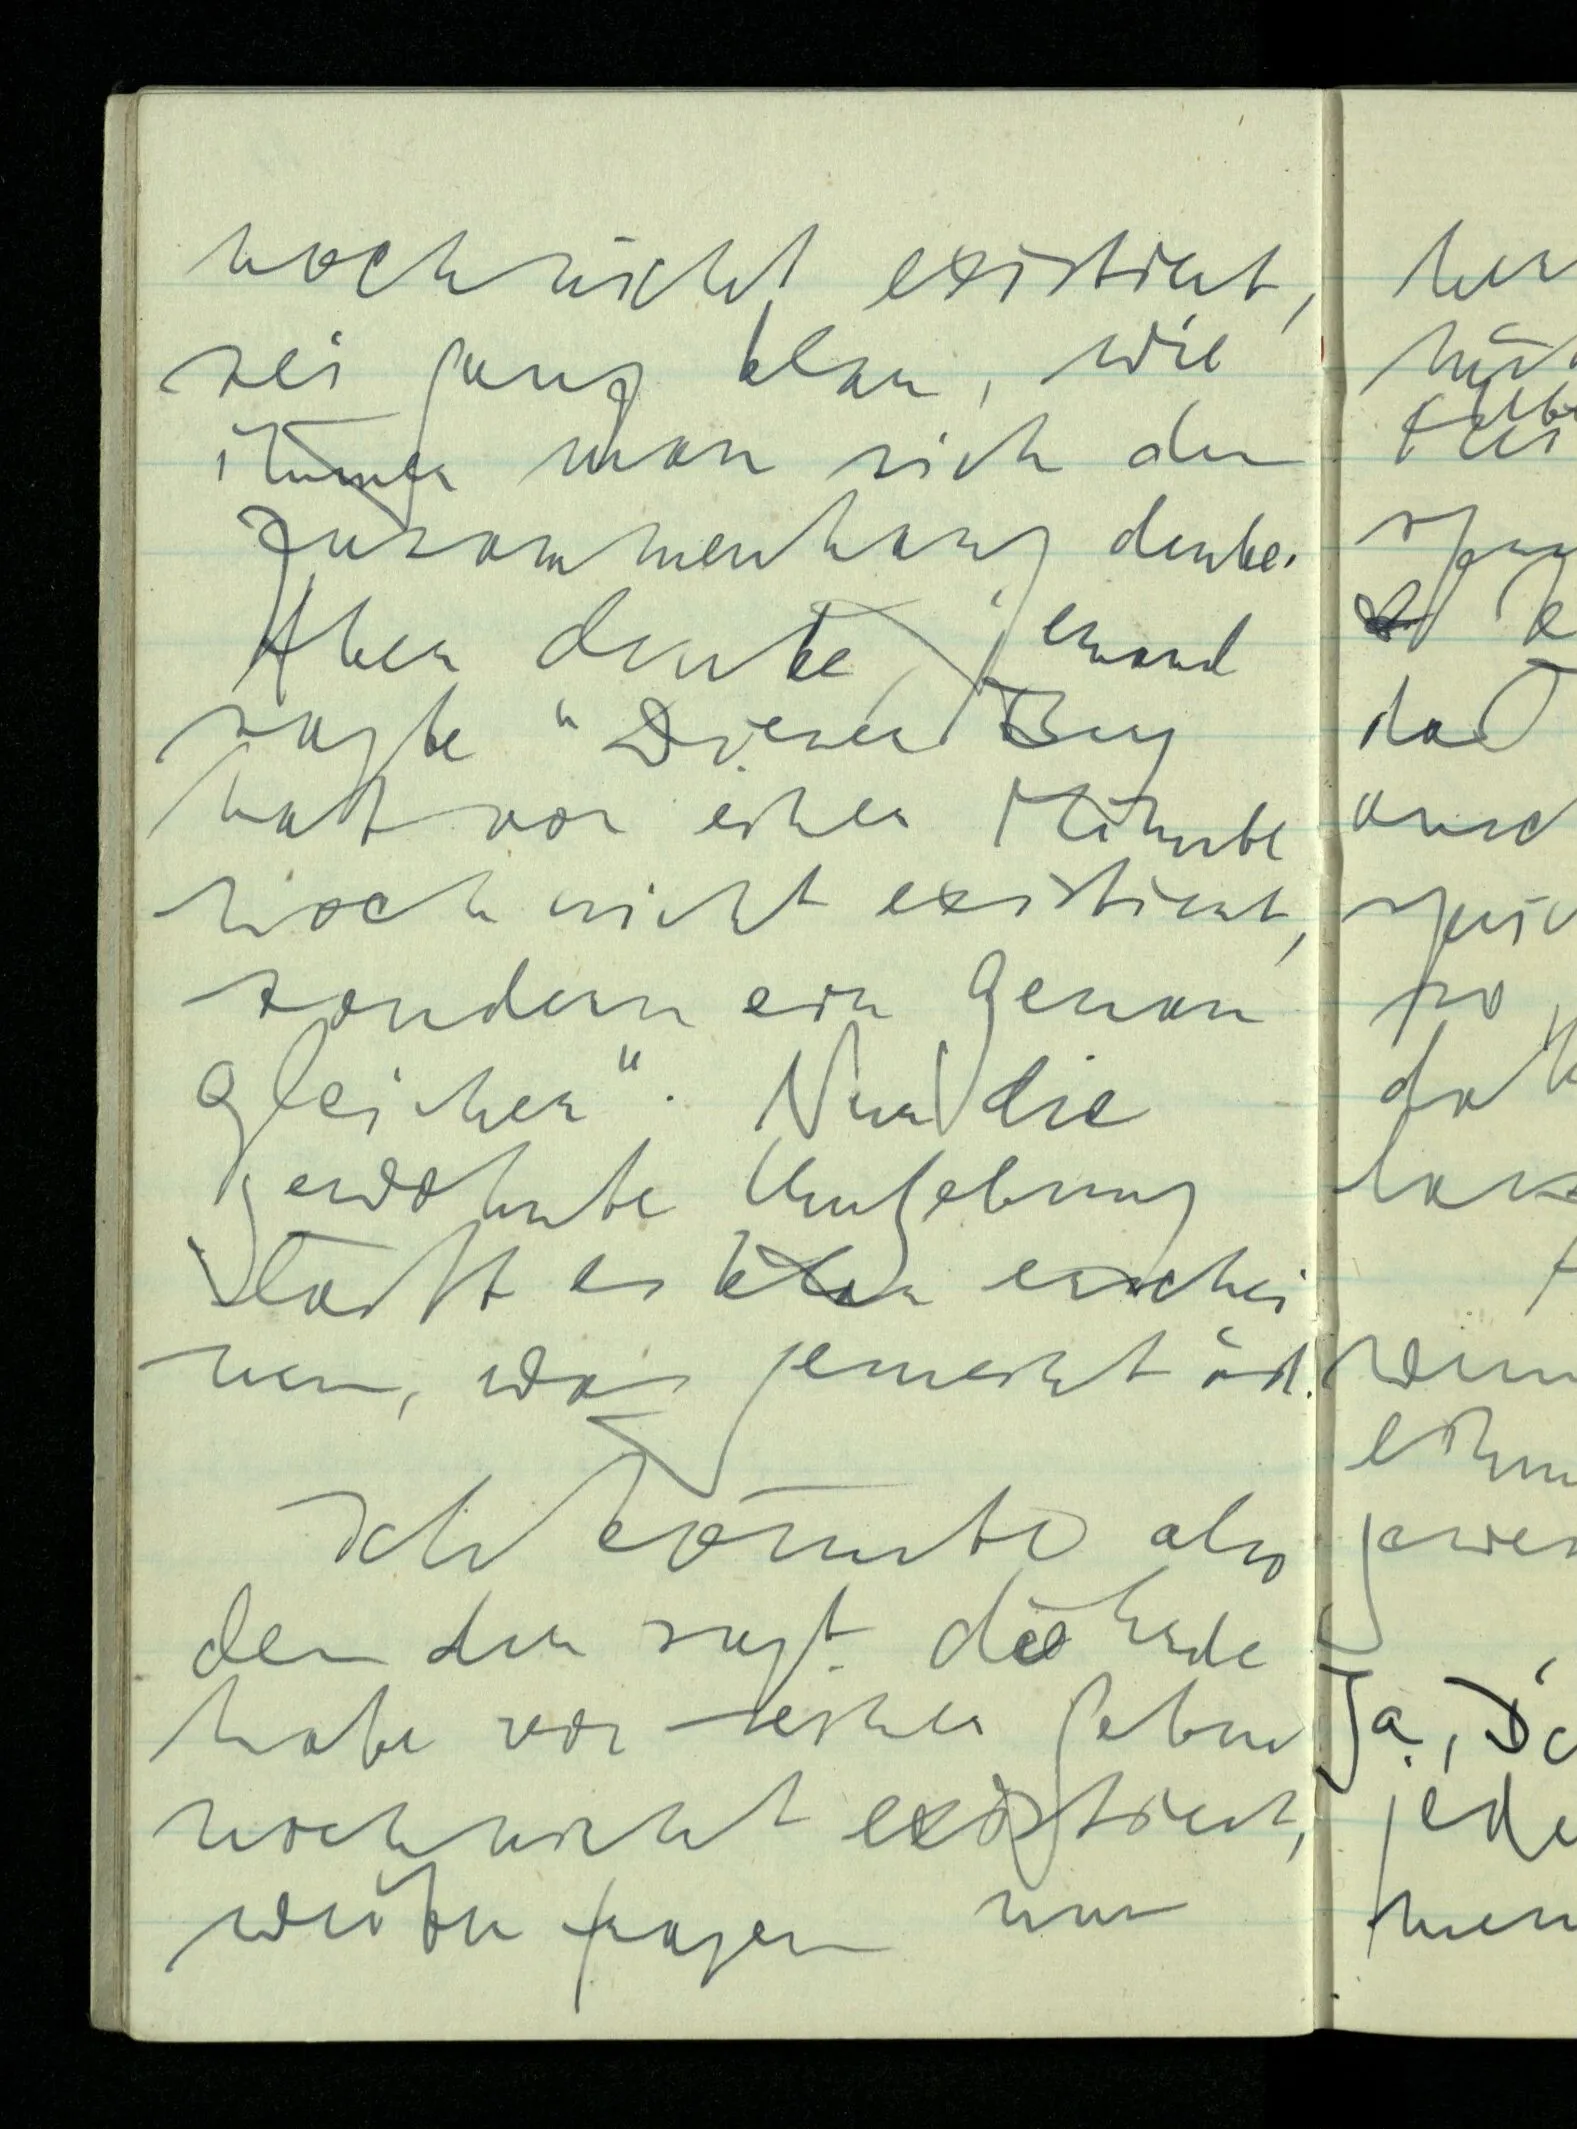 noch nicht existiert,
sei ganz klar, wie
immer man sich den
Zusammenhang denke.
Aber denke, jemand
sagte "Dieser Berg
hat vor einer Minute
noch nicht existiert,
sondern ein genau
gleicher". Nur die
gewohnte Umgebung
läßt es klar erschei
nen, was gemeint ist.
Ich könnte also
den der sagt die Erde
habe vor seiner Geburt
noch nicht existiert,
weiter fragen um
Ja,